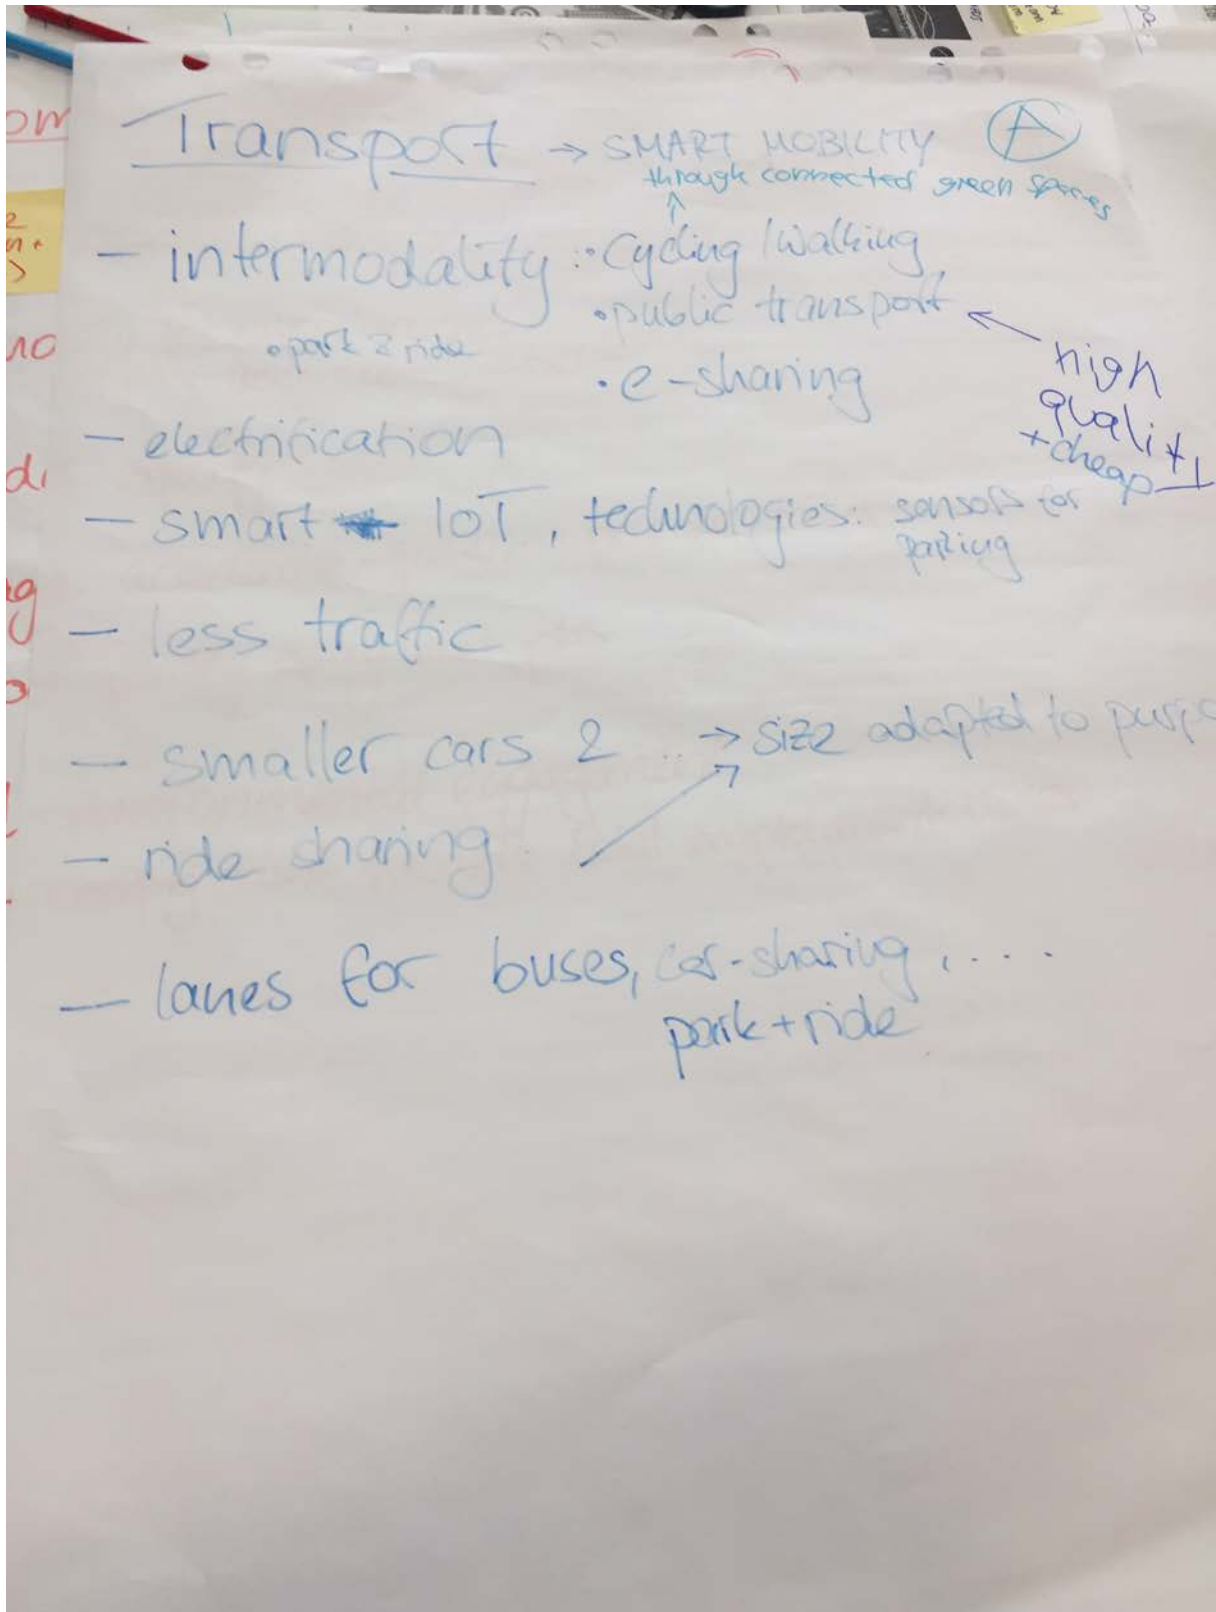 Transport → SMART MOBILITY A
through connected green spaces
- intermodality : • cycling / walking
• public transport
• park & ride
• e-sharing
high
quality
+ cheap
- electrification
- smart IoT, technologies: sensors for
parking
- less traffic
- smaller cars 2 .. → size adapted to
- ride sharing
- lanes for buses, car-sharing, ....
park + ride